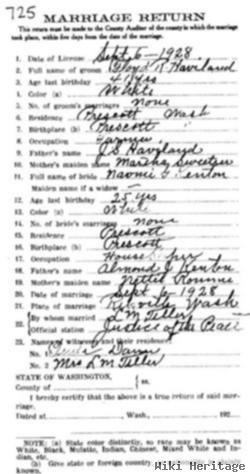 725
MARRIAGE RETURN
This return must be made to the County Auditor of the county in which the marriage
took place, within five days from the date of the marriage.
1. Date of License Sept 6 - 1928
2. Full name of groom Floyd R Haviland
3. Age last birthday yrs
4. Color (a) White
5. No. of groom's marriages none
6. Residence Prescott Wash
7. Birthplace (b) Prescott "
8. Occupation Farmer
9. Father's name J B Haviland
10. Mother's maiden name Martha Sweetser
11. Full name of bride Naomi Kenton
Maiden name if a widow -
12. Age last birthday 25 yrs
13. Color (a) White
14. No. of bride's marriages none
15. Residence Prescott
16. Birthplace (b) Prescott
17. Occupation House
18. Father's name Almond J
19. Mother's maiden name Nettie
20. Date of marriage Sept 6 1928
21. Place of marriage Ritzville Wash
22. By whom married L M Teller
Official station Justice of the Peace
23. Names of witnesses and their residences:
No. 1
No. 2 Mrs L M Teller
STATE OF WASHINGTON, } ss.
County of
I hereby certify that the above is a true return of said mar-
riage.
Dated at , Wash., 192
NOTE: (a) State color distinctly, so race may be known as
White, Black, Mulatto, Indian, Chinese, Mixed White and In-
dian, etc.
(b) Give state or foreign country
known.
Wiki Heritage